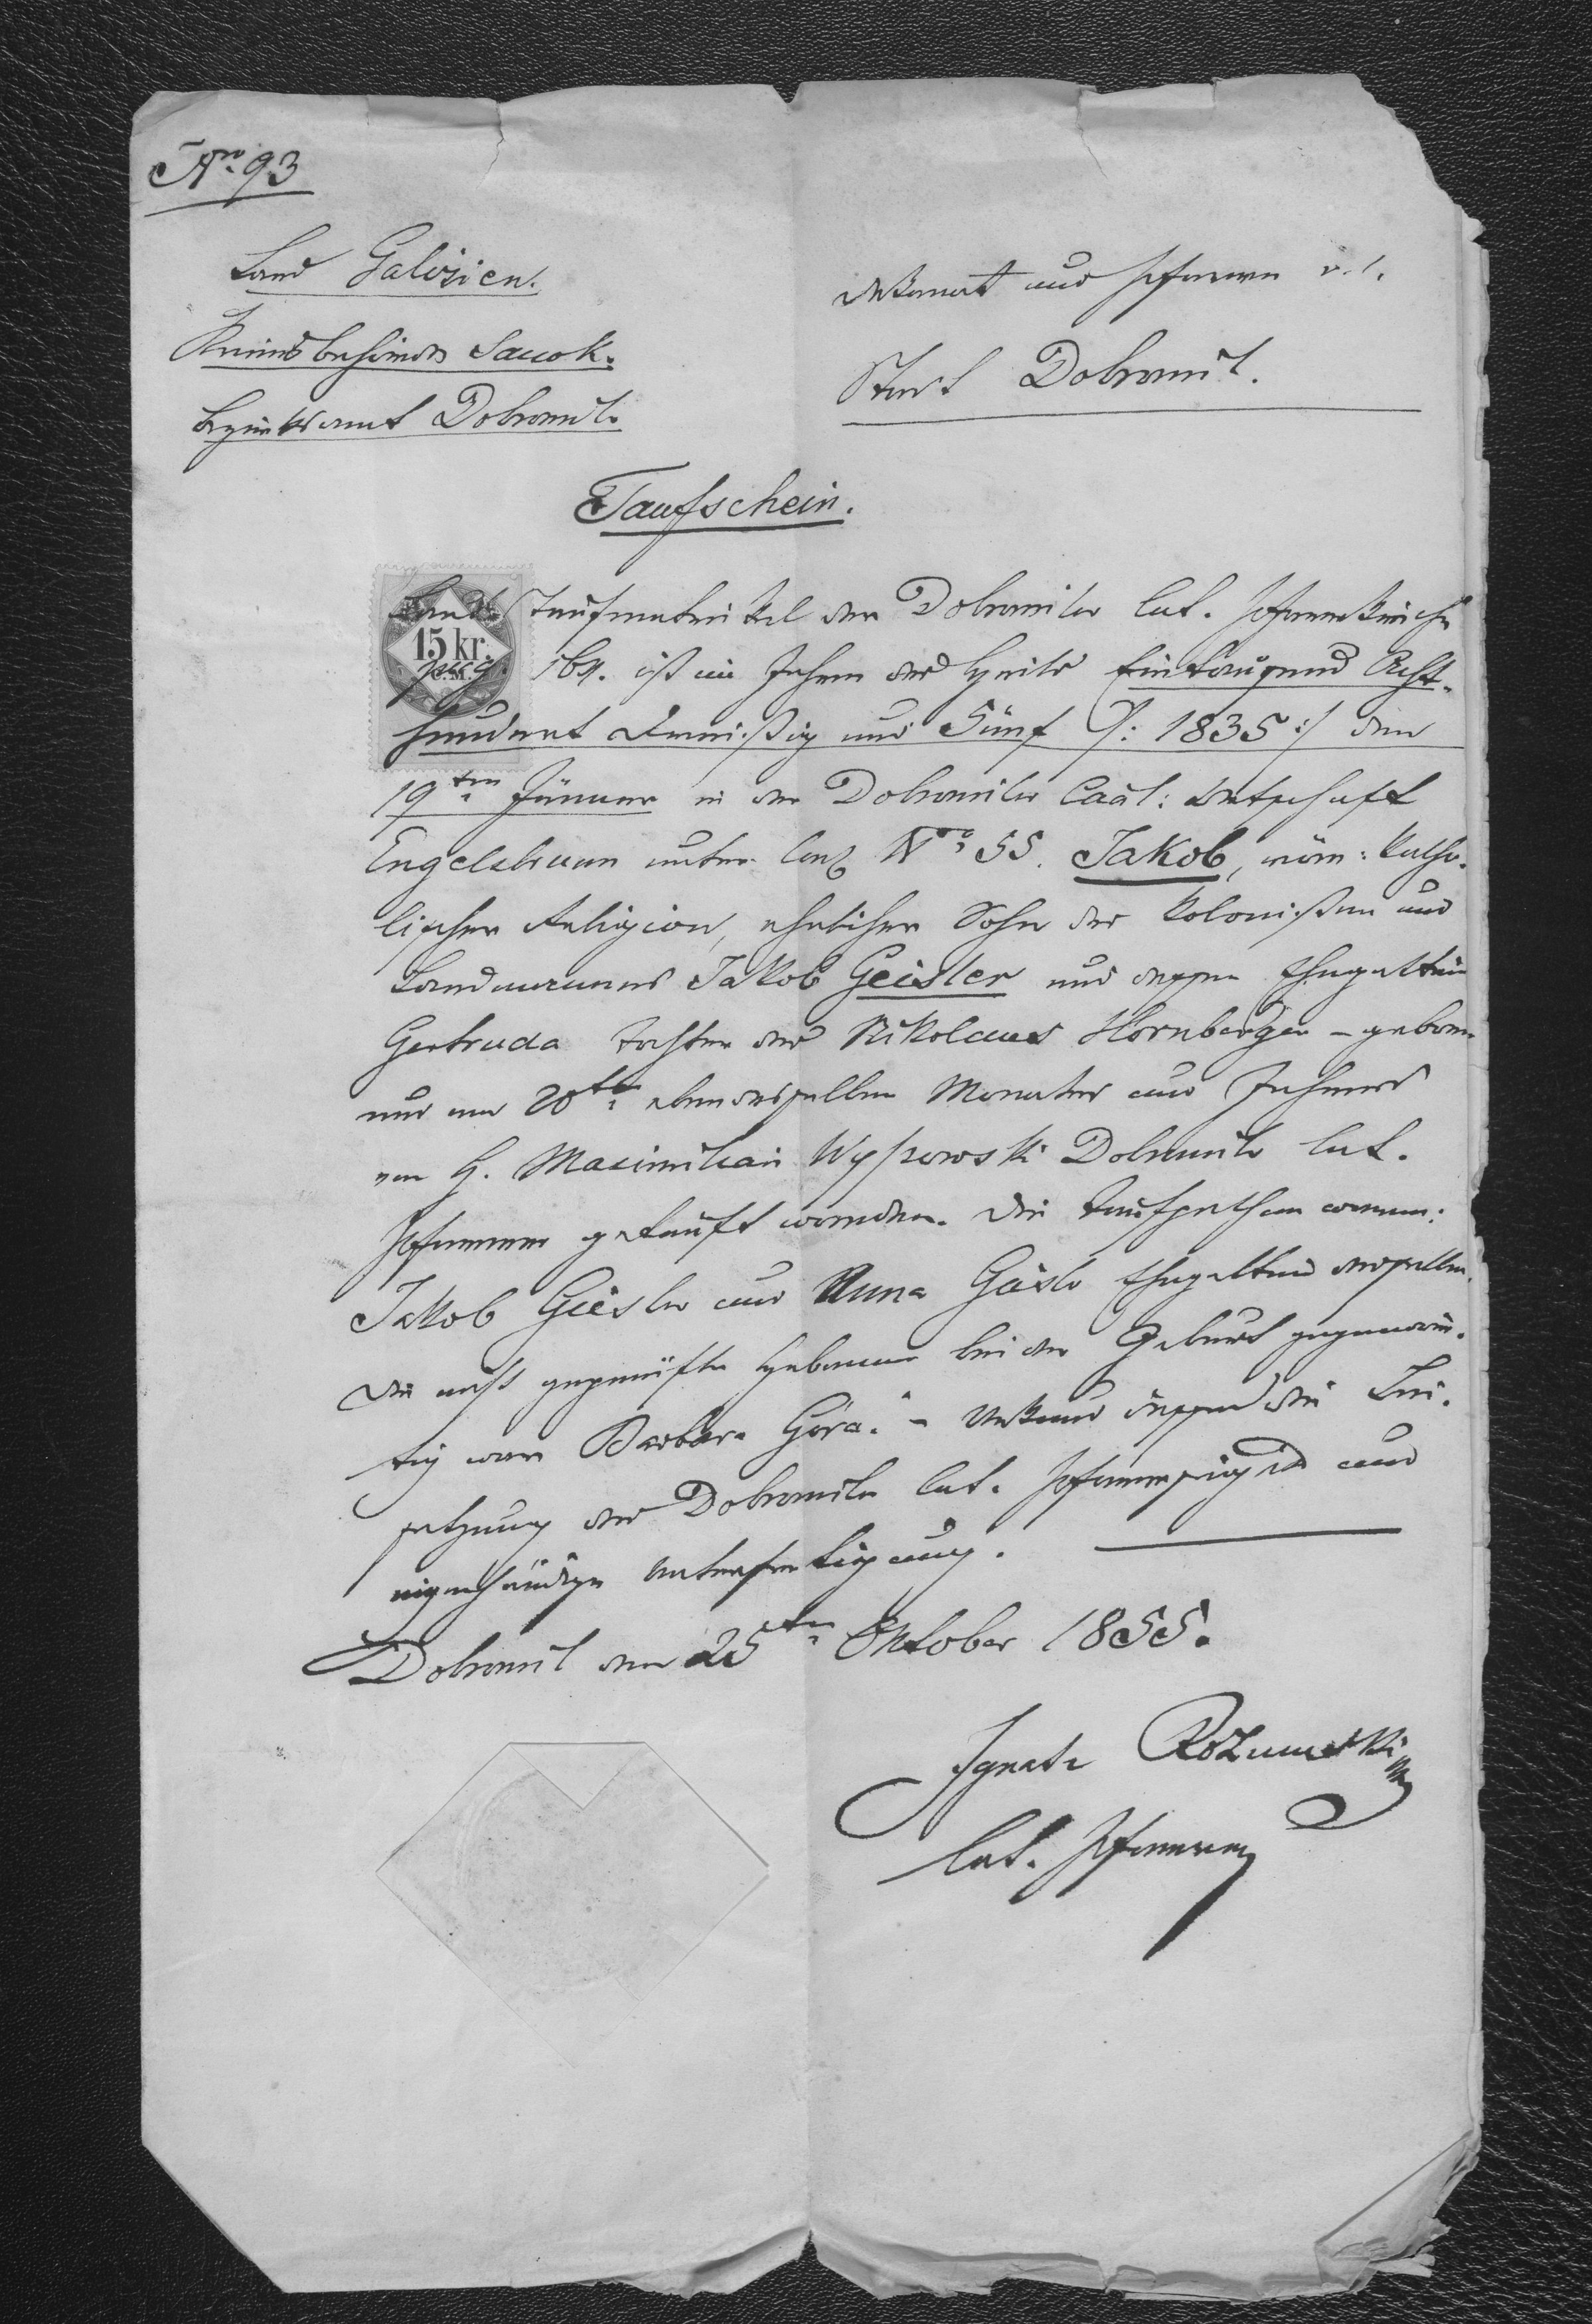 Nro 93
Land Galizien.
Kreisbehörde Sanok.
Bezirksamt Dobromil.
Dekanat und Pfarre r. l.
Stadt Dobromil.
Taufschein.
15 kr.
C.M.
Taufmatrikel der Dobromiler lat. Pfarrkirche
pag. 164. ist im Jahre des Heils Eintausend Acht-
hundert Dreißig und Fünf /: 1835 :/ den
19ten Jänner in der Dobromiler Ortschaft
Engelsbrunn unter Nro 55. Jakob, röm: katho-
lischer Religion, ehelicher Sohn des Kolonisten und
Landmanns Jakob Geisler und dessen Ehegattin
Gertruda Tochter des Nikolaus Hornberger – geboren
und am 20ten ebendesselben Monates und Jahres
von H. Maximilian Dobromiler lat.
Pfarrer getauft worden. Die Taufpathen waren:
Jakob Geisler und Anna Geisler Ehegattin desselben.
Die nicht geprüfte Hebamme bei der Geburt gegenwär-
tig war Barbara Góra. – Urkund dessen die Bei-
setzung des Dobromiler lat. Pfarrsigills und
eigenhändige Unterfertigung.
Dobromil den 25ten Oktober 1855.
Ignatz
lat. Pfarrer